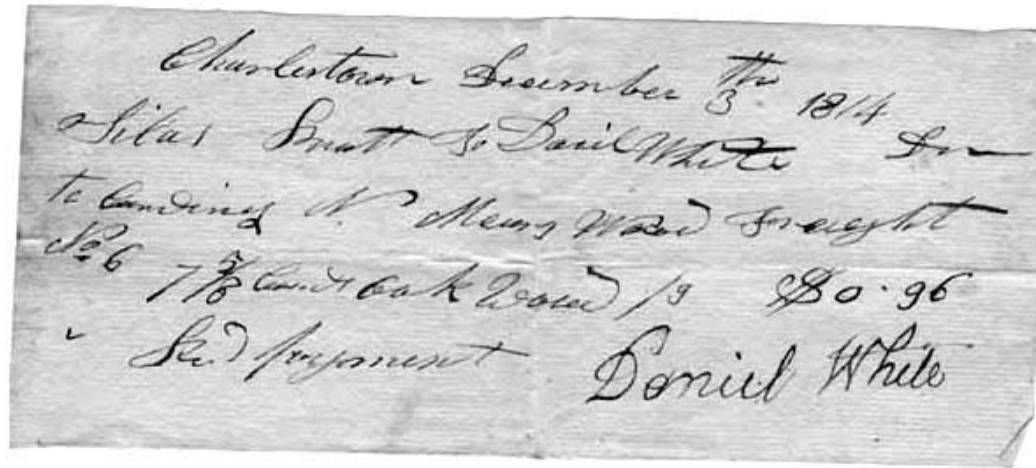 Charlestown December 3th 1814
Silas to Daniel White Dr
to N Wood freight
No 6 7 5/8 Cords Oak Wood /9 $0.96
Rec'd payment Daniel White